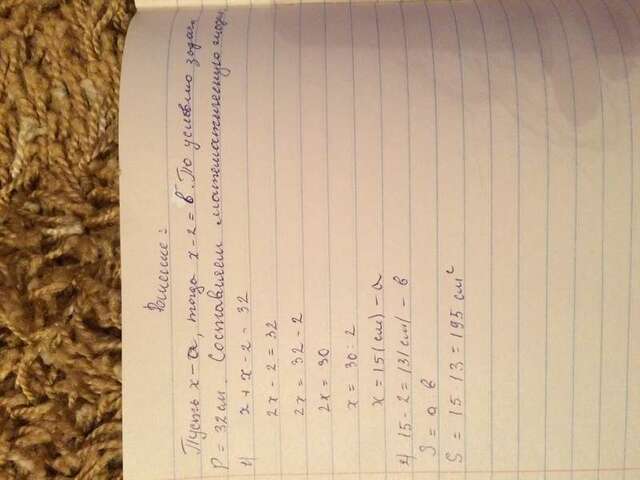 Решение:
Пусть x – a, тогда x - 2 = в. По условию задачи
P = 32 см. Составляем математическую модел
1) x + x - 2 = 32
2x - 2 = 32
2x = 32 - 2
2x = 30
x = 30 : 2
x = 15 (см) – a
2) 15 - 2 = 13 (см) – в
S = a в
S = 15 · 13 = 195 см²